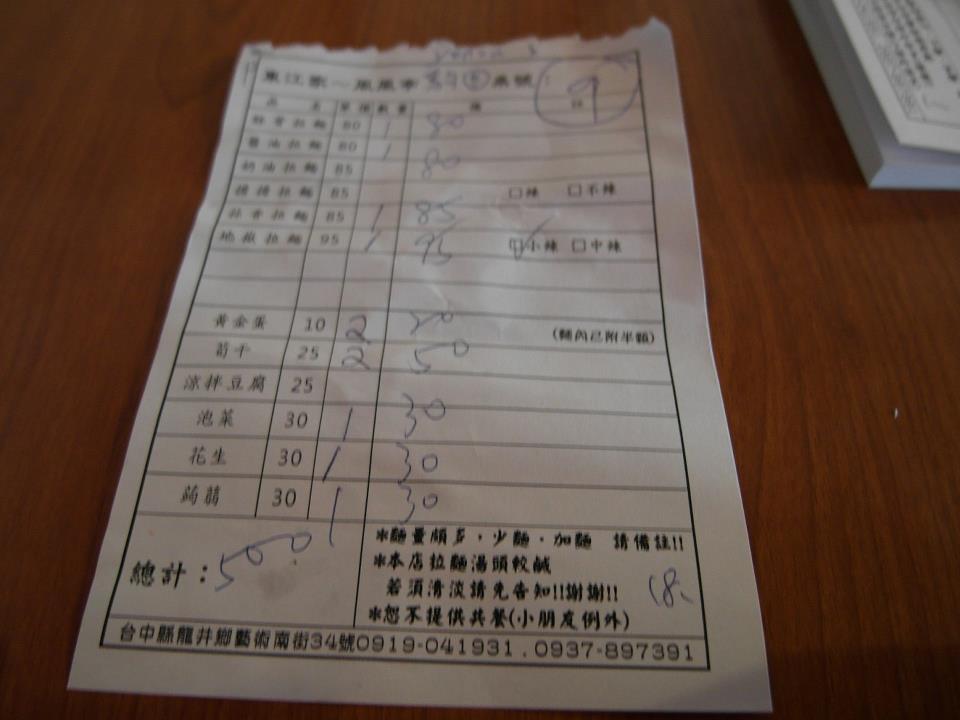 東江家～鳳凰亭 桌號： 9
品 名 單價 數量 備 註
豚骨拉麵 80 1 80
醬油拉麵 80 1 80
奶油拉麵 85
擔擔拉麵 85 □辣 □不辣
蒜香拉麵 85 1 85
地獄拉麵 95 1 95 □小辣 □中辣
黃金蛋 10 2 20 (麵內已附半顆)
筍干 25 2 50
涼拌豆腐 25
泡菜 30 1 30
花生 30 1 30
蒟蒻 30 1 30
總計：500
*麵量頗多，少麵、加麵 請備註!!
*本店拉麵湯頭較鹹
若須清淡請先告知!!謝謝!!
*恕不提供共餐(小朋友例外)
台中縣龍井鄉藝術南街34號0919-041931．0937-897391